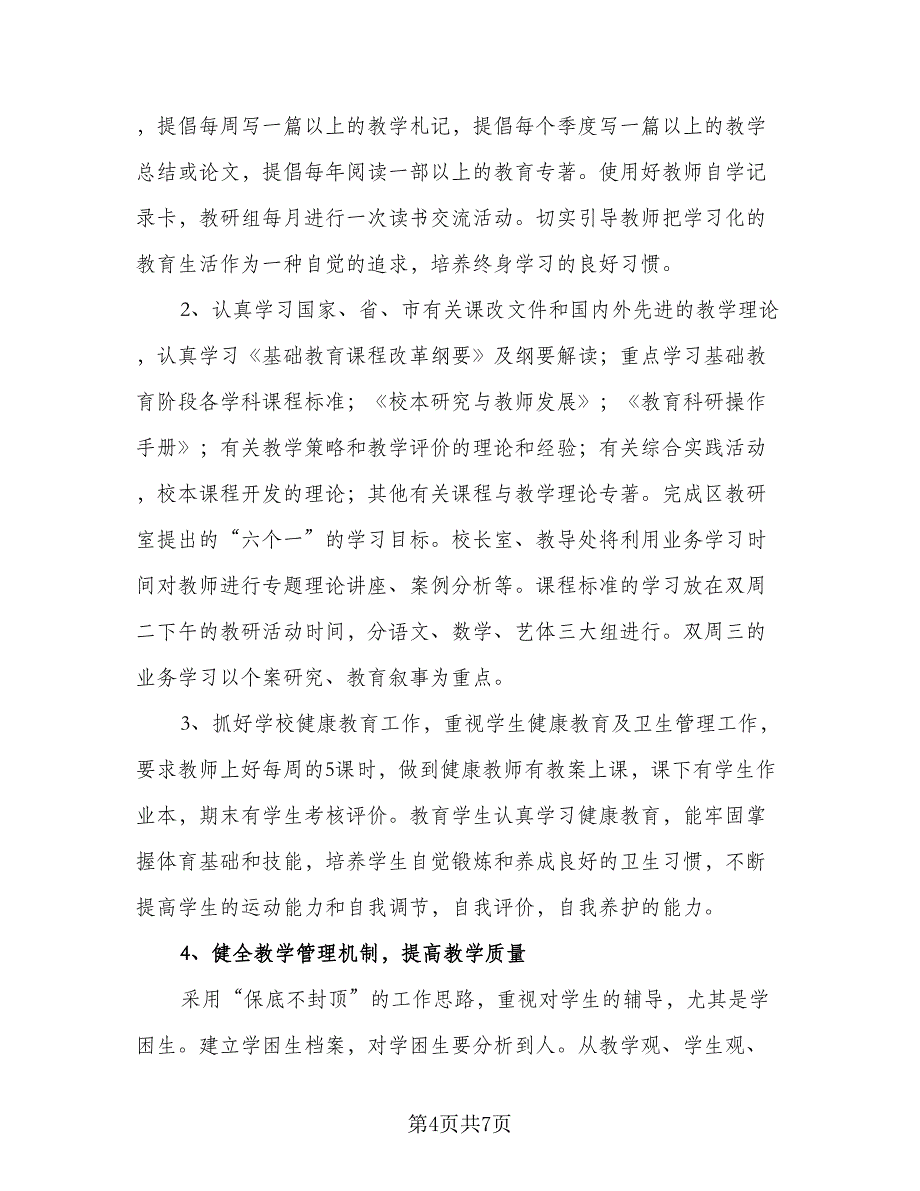 ，提倡每周写一篇以上的教学札记，提倡每个季度写一篇以上的教学
总结或论文，提倡每年阅读一部以上的教育专著。使用好教师自学记
录卡，教研组每月进行一次读书交流活动。切实引导教师把学习化的
教育生活作为一种自觉的追求，培养终身学习的良好习惯。
2、认真学习国家、省、市有关课改文件和国内外先进的教学理论
，认真学习《基础教育课程改革纲要》及纲要解读；重点学习基础教
育阶段各学科课程标准；《校本研究与教师发展》；《教育科研操作
手册》；有关教学策略和教学评价的理论和经验；有关综合实践活动
，校本课程开发的理论；其他有关课程与教学理论专著。完成区教研
室提出的“六个一”的学习目标。校长室、教导处将利用业务学习时
间对教师进行专题理论讲座、案例分析等。课程标准的学习放在双周
二下午的教研活动时间，分语文、数学、艺体三大组进行。双周三的
业务学习以个案研究、教育叙事为重点。
3、抓好学校健康教育工作，重视学生健康教育及卫生管理工作，
要求教师上好每周的5课时，做到健康教师有教案上课，课下有学生作
业本，期末有学生考核评价。教育学生认真学习健康教育，能牢固掌
握体育基础和技能，培养学生自觉锻炼和养成良好的卫生习惯，不断
提高学生的运动能力和自我调节，自我评价，自我养护的能力。
4、健全教学管理机制，提高教学质量
采用“保底不封顶”的工作思路，重视对学生的辅导，尤其是学
困生。建立学困生档案，对学困生要分析到人。从教学观、学生观、
第4页共7页